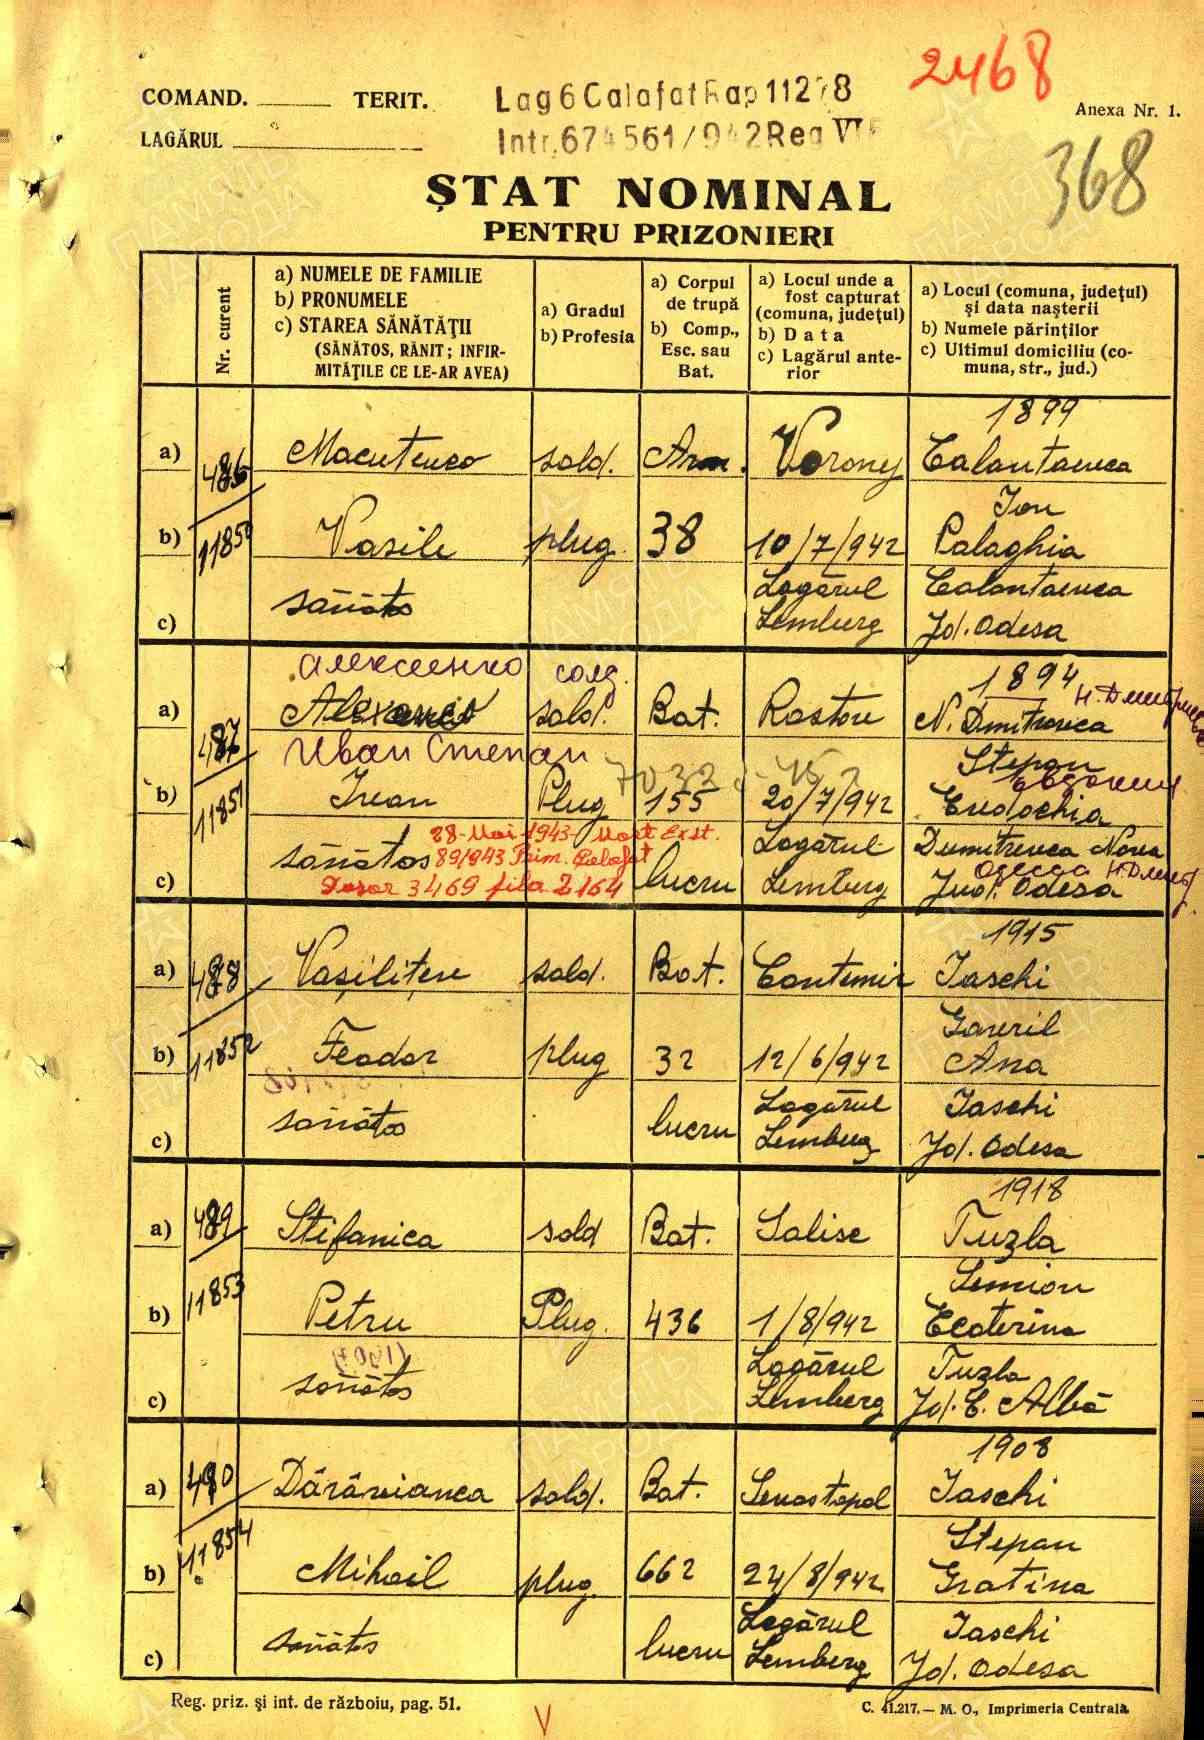 2468
COMAND. TERIT.
Lag 6 Calafat Rap 11278
Anexa Nr. 1.
LAGĂRUL
Intr. 674561/942 Reg VII
368
ȘTAT NOMINAL
PENTRU PRIZONIERI
Nr. curent
a) NUMELE DE FAMILIE
b) PRONUMELE
c) STAREA SĂNĂTĂȚII
(SĂNĂTOS, RĂNIT; INFIR-
MITĂȚILE CE LE-AR AVEA)
a) Gradul
b) Profesia
a) Corpul
de trupă
b) Comp.,
Esc. sau
Bat.
a) Locul unde a
fost capturat
(comuna, județul)
b) Data
c) Lagărul ante-
rior
a) Locul (comuna, județul)
și data nașterii
b) Numele părinților
c) Ultimul domiciliu (co-
muna, str., jud.)
1899
a) 486 Macutenco sold. Arm. Voronej Calantaevca
Ion
b) 11850 Vasile plug. 38 10/7/942 Palaghia
Lagărul Calantaevca
c) sănătos Lemberg Jd. Odesa
Алексеенко солд. 1894 Н. Дмитриевка
a) 487 sold. Bat. Rostov N. Dmitrovca
Иван Степан Stepan
Евдокия
b) 11851 Ivan Plug 155 20/7/942 Eudochia
28-Mai 1943- Mort Exst.
Lagărul Dumitrevca Nova
sănătos 89/943 Prim. Calafat
Одесса Н. Дмит
c) Dosar 3469 fila 2164 lucru Lemberg Jud. Odesa
1915
a) 488 Vasilițev sold. Bat. Cantemir Iaschi
Gavril
b) 11852 Feodor plug 32 12/6/942 Ana
Lagărul Iaschi
c) sănătos lucru Lemberg Jd. Odesa
1918
a) 489 Stifanica sold Bat. Salisc Tuzla
Semion
b) 11853 Petru Plug. 436 1/8/942 Ecaterina
Lagărul Tuzla
c) sănătos Lemberg Jd. C. Albă
1908
a) 490 Dărăvianca sold. Bat. Sevastopol Iaschi
Stepan
b) 11854 Mihail plug. 662 24/8/942 Gratina
Lagărul Iaschi
c) sănătos lucru Lemberg Jd. Odesa
Reg. priz. și int. de războiu, pag. 51.
C. 41.217.— M. O., Imprimeria Centrală
V
ПАМЯТЬ
НАРОДА